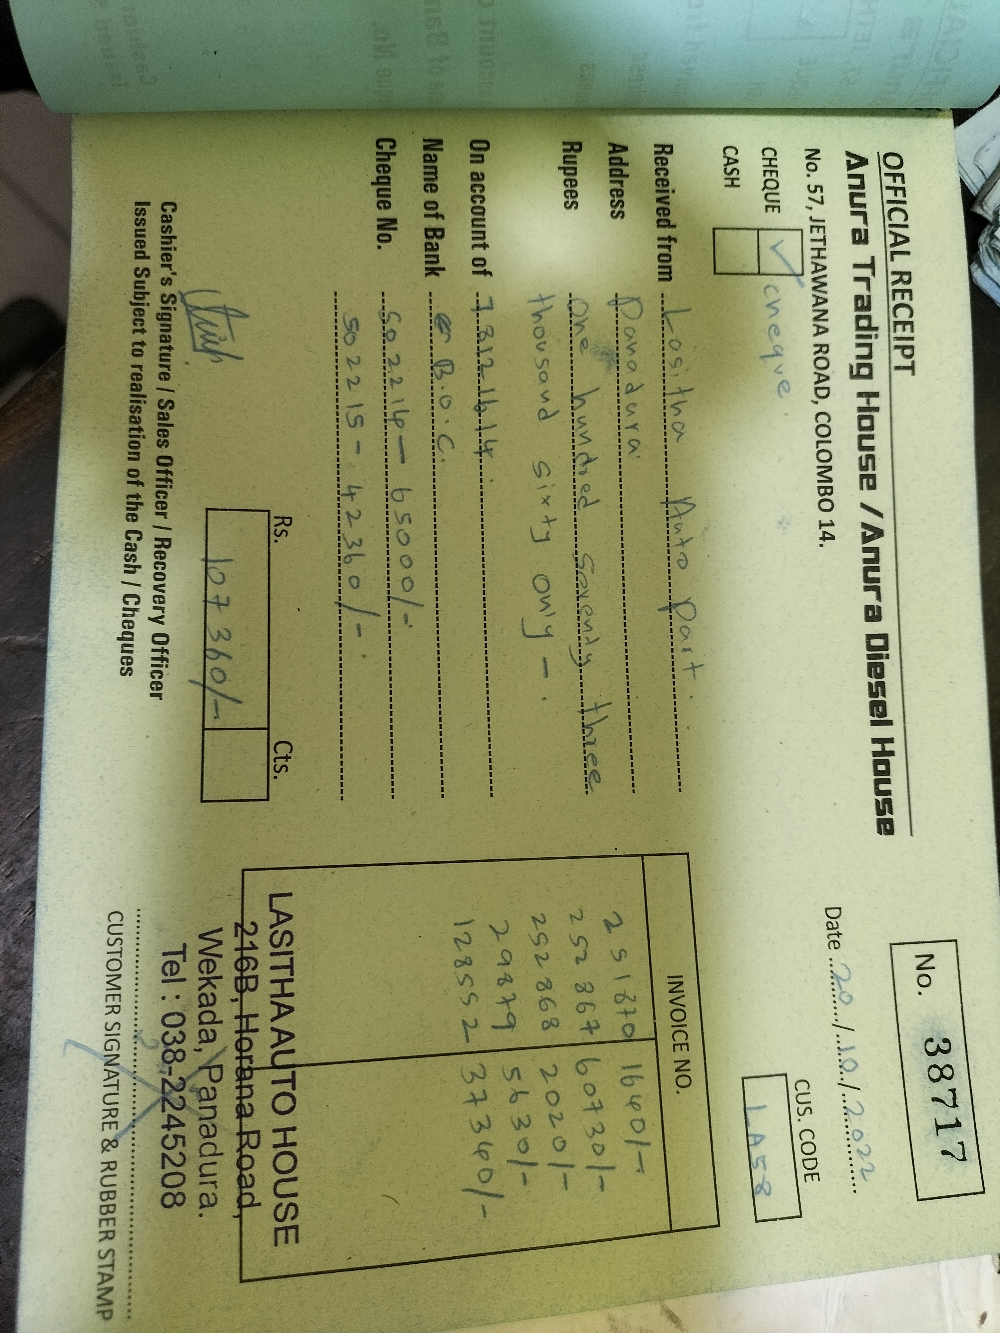 OFFICIAL RECEIPT
Anura Trading House / Anura Diesel House
No. 57, JETHAWANA ROAD, COLOMBO 14.
No. 38717
Date 20/10/2022
CHEQUE ✓ cheque.
CASH
CUS. CODE
LA58
Received from Lasitha Auto Part.
Address Panadura
Rupees One hundred seventy three
thousand sixty only -.
On account of
Name of Bank B.O.C.
Cheque No. 502214 - 65000/-
502215 - 42360/-.
INVOICE NO.
251870 1640/-
252867 60730/-
252868 2020/-
29879 5630/-
128552 37340/-
Rs. Cts.
107360/-
LASITHA AUTO HOUSE
216B, Horana Road,
Wekada, Panadura.
Tel : 038-2245208
Cashier's Signature / Sales Officer / Recovery Officer
Issued Subject to realisation of the Cash / Cheques
CUSTOMER SIGNATURE & RUBBER STAMP